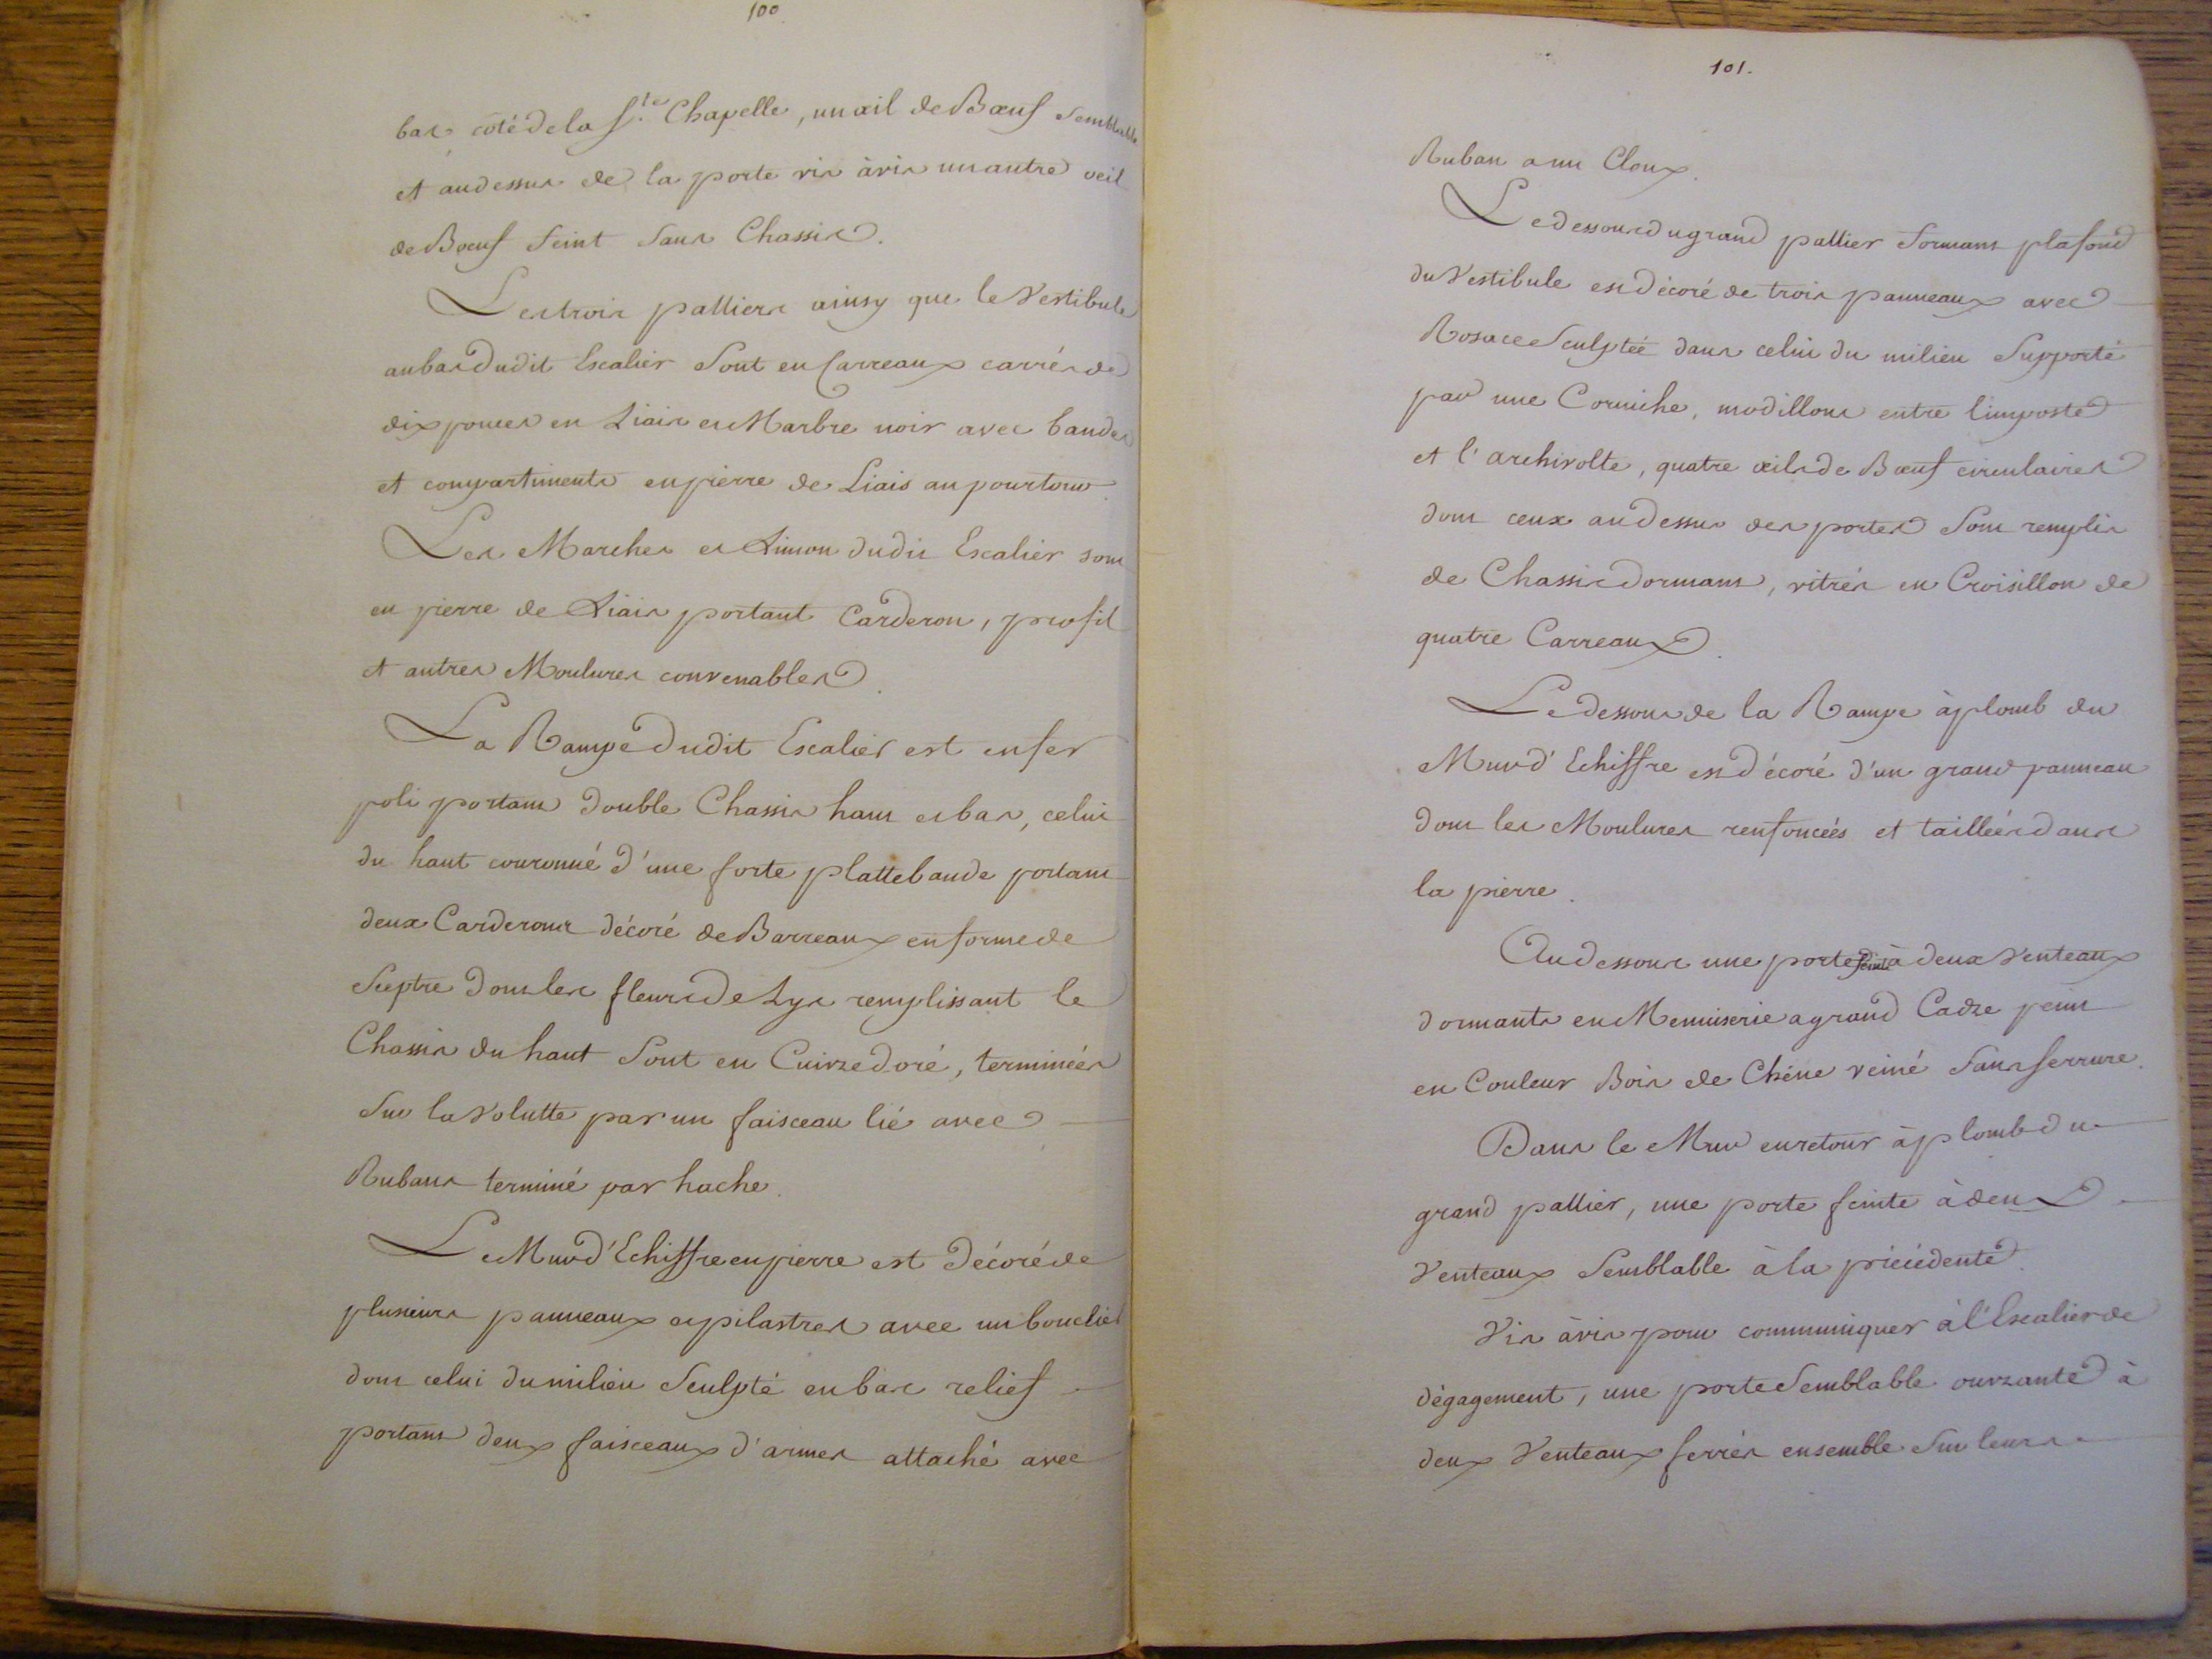 100
bas côté de la S.te Chapelle, un œil de Bœuf Semblable
et au dessus de la porte vis àvis un autre oeil
de Boeuf feint Sans Chassis.
Les trois palliers ainsy que le Vestibule
au bas dudit Escalier Sont en Carreaux carrés de
dix pouces en Liais et Marbre noir avec bandes
et compartiments en pierre de Liais au pourtour.
Les Marches et Limon dudit Escalier sont
en pierre de Liais portant Carderon, profil
et autres Moulures convenables.
La Rampe dudit Escalier est en fer
poli portant double Chassis haut et bas, celui
du haut couronné d'une forte plattebande portant
deux Carderons décoré de Barreaux en forme de
Sceptre dont les fleurs de Lys remplissant le
Chassis du haut Sont en Cuivre doré, terminées
Sur la Volutte par un faisceau lié avec
Rubans terminé par hache.
Le Mur d'Echiffre en pierre est décoré de
plusieurs panneaux et pilastres avec un bouclier
dont celui du milieu Sculpté en bas relief
portant deux faisceaux d'armes attaché avec
101.
Ruban a un Cloux.
Le dessous du grand pallier formant plafond
du Vestibule est décoré de trois panneaux avec
Rosace Sculptée dans celui du milieu Supporté
par une Corniche, modillons entre l'imposte
et l'archivolte, quatre œils de Bœuf circulaires
dont ceux au dessus des portes Sont remplis
de Chassis dormans, vitrés en Croisillon de
quatre Carreaux.
Le dessous de la Rampe àplomb du
Mur d'Echiffre est décoré d'un grand panneau
dont les Moulures renfoncées et taillées dans
la pierre.
Au dessous une porte feinte à deux Venteaux
dormants en Menuiserie a grand Cadre peint
en Couleur Bois de Chêne veiné Sans ferrure.
Dans le Mur en retour àplomb du
grand pallier, une porte feinte à deux
Venteaux Semblable à la précédente.
Vis àvis pour communiquer à l'Escalier de
dégagement, une porte Semblable ouvrante à
deux Venteaux ferrés ensemble Sur leurs